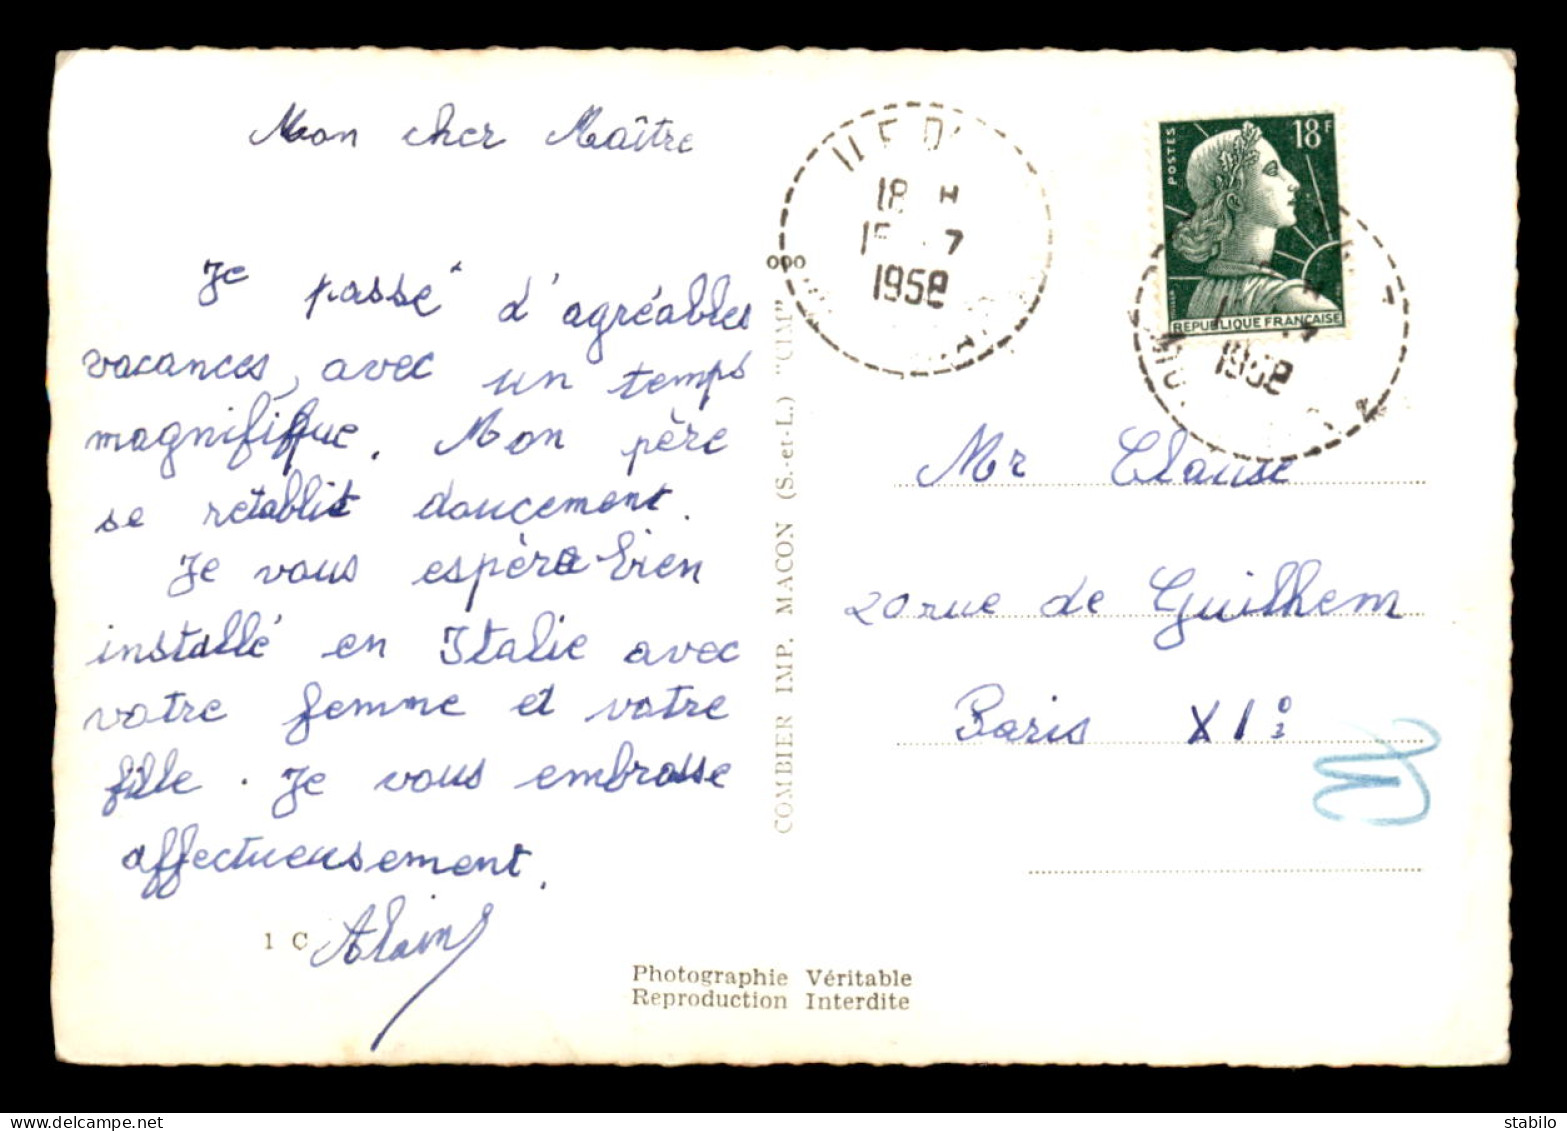 Mon cher Maître
Je passe d'agréables
vacances, avec un temps
magnifique. Mon père
se rétablit doucement.
Je vous espère bien
installé en Italie avec
votre femme et votre
fille. Je vous embrasse
affectueusement.
Alain
1 C
COMBIER IMP. MACON (S.-et-L.) "CIM"
Photographie Véritable
Reproduction Interdite
ILE D'
18 H
7
1958
POSTES
18F
REPUBLIQUE FRANÇAISE
1958
Mr Clause
20 rue de Guilhem
Paris XIe
stabilo